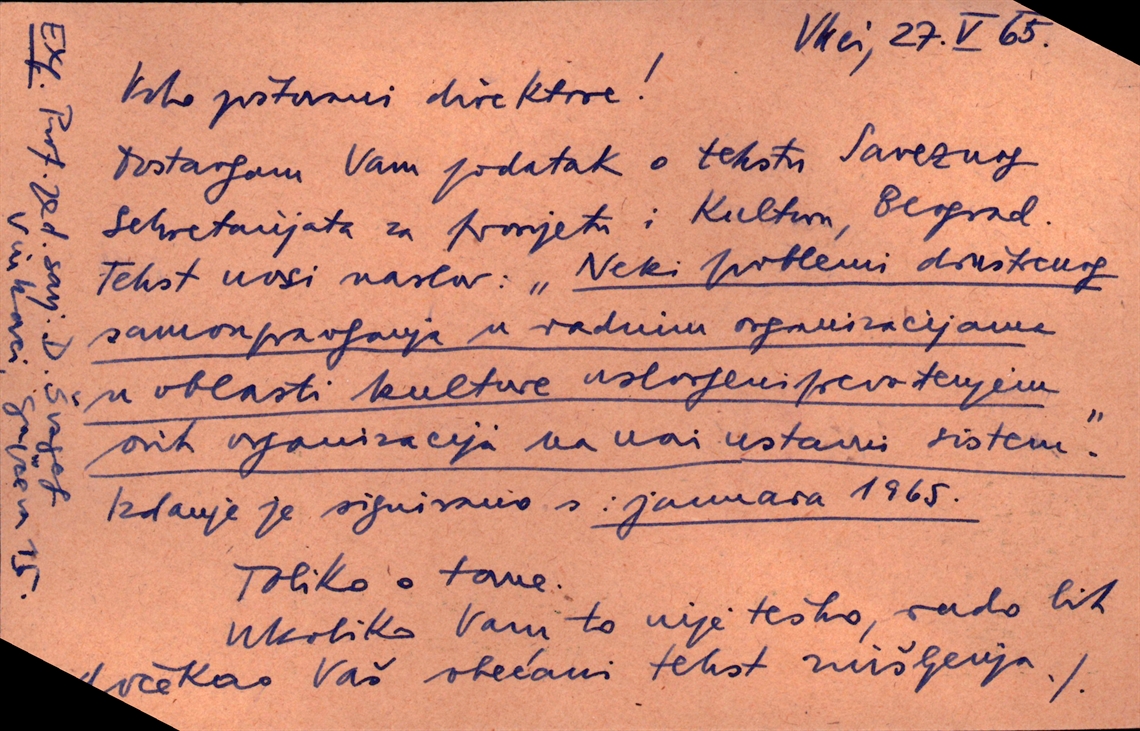 Vkci, 27. V 65.
Vrlo poštovani direktore!
Dostavljam Vam podatak o tekstu Saveznog
Sekretarijata za prosvjetu i Kulturu, Beograd.
Tekst nosi naslov: „Neki problemi društvenog
samoupravljanja u radnim organizacijama
u oblasti kulture uslovljeni prevođenjem
ovih organizacija na novi ustavni sistem".
Izdanje je signirano s: januara 1965.
Toliko o tome.
Ukoliko Vam to nije teško, rado bih
dočekao Vaš obećani tekst mišljenja./.
Prof. D. Švagelj
Vinkovci, 15.